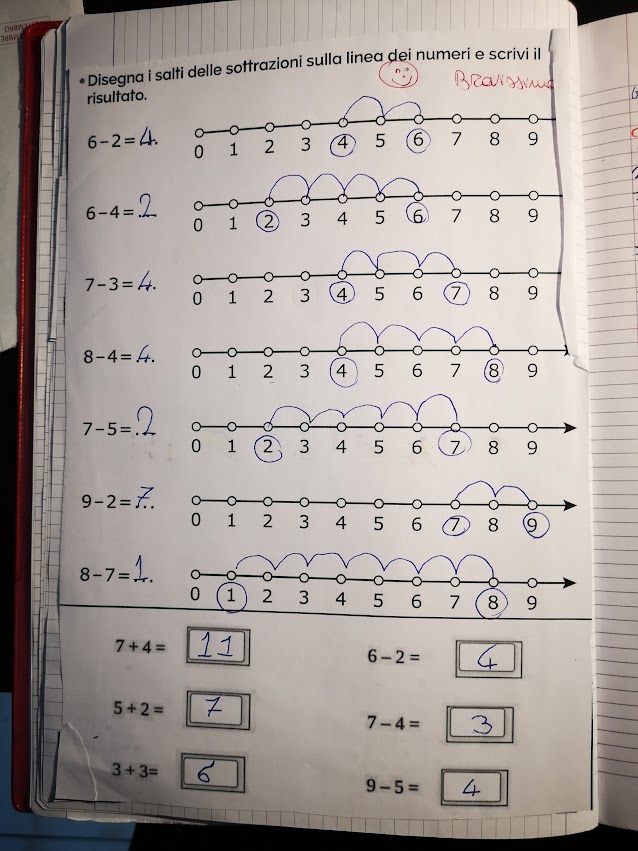 • Disegna i salti delle sottrazioni sulla linea dei numeri e scrivi il
risultato.
Bravissima
6-2=4.
0 1 2 3 4 5 6 7 8 9
6-4=.2
0 1 2 3 4 5 6 7 8 9
7-3=4.
0 1 2 3 4 5 6 7 8 9
8-4=.4.
0 1 2 3 4 5 6 7 8 9
7-5=.2
0 1 2 3 4 5 6 7 8 9
9-2=7.
0 1 2 3 4 5 6 7 8 9
8-7=1.
0 1 2 3 4 5 6 7 8 9
7+4= 11
6-2= 4
5+2= 7
7-4= 3
3+3= 6
9-5= 4